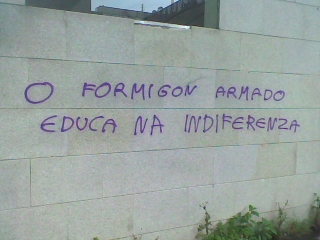 O FORMIGON ARMADO
EDUCA NA INDIFERENZA